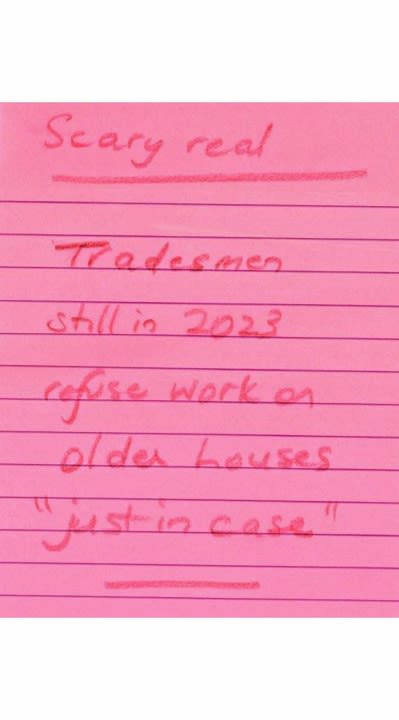 Scary real
Tradesmen
still in 2023
refuse work on
older houses
"just in case"